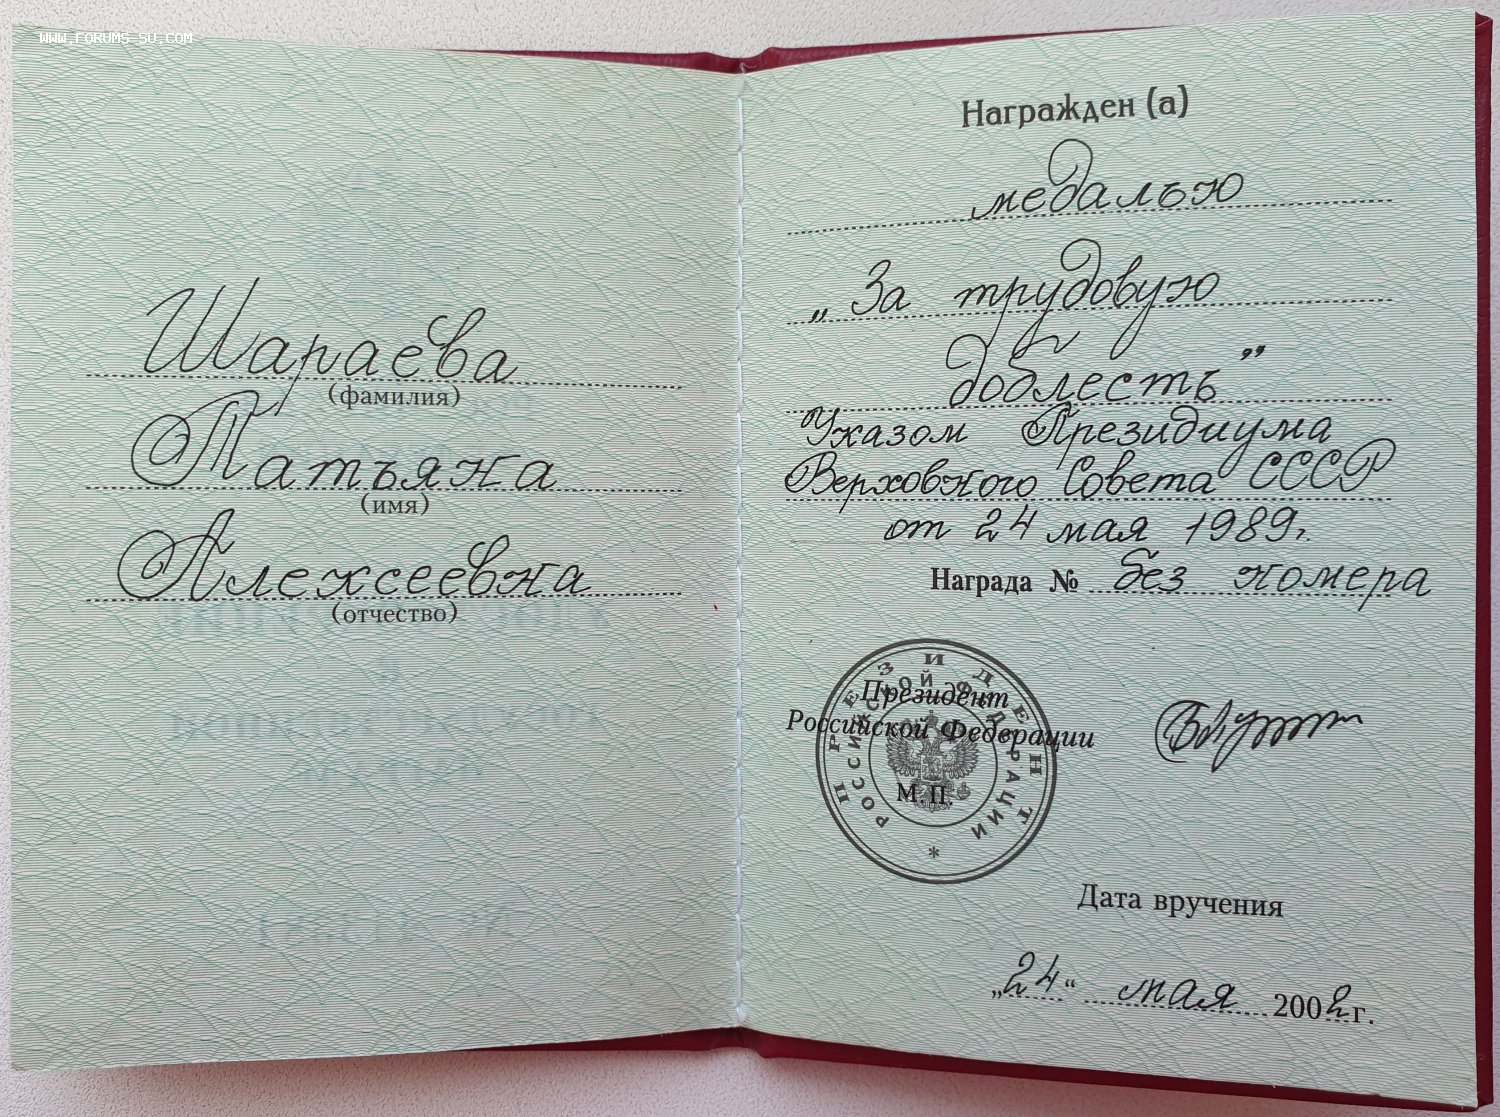 WWW.FORUMS-SU.COM
Шараева
(фамилия)
Татьяна
(имя)
Алексеевна
(отчество)
Награжден (а)
медалью
„За трудовую
доблесть”
Указом Президиума
Верховного Совета СССР
от 24 мая 1989г.
Награда № без номера
ПРЕЗИДЕНТ
РОССИЙСКОЙ ФЕДЕРАЦИИ
*
Президент
Российской Федерации
М.П.
Дата вручения
„24“ мая 2002г.